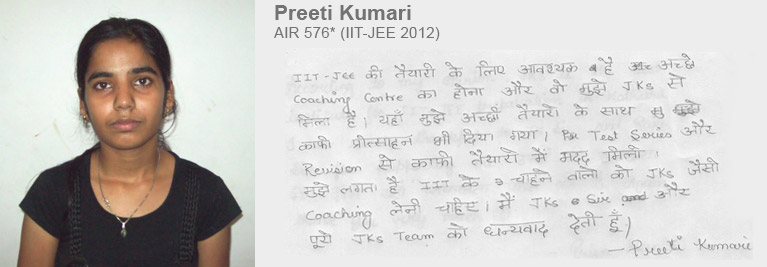 Preeti Kumari
AIR 576* (IIT-JEE 2012)
IIT-JEE की तैयारी के लिए आवश्यक है अच्छे
Coaching Centre का होना और वो मुझे JKs से
मिला है। यहाँ मुझे अच्छी तैयारी के साथ
काफी प्रोत्साहन भी दिया गया। Test Series और
Revision से काफी तैयारी में मदद मिली।
मुझे लगता है IIT के चाहने वालो को JKs जैसी
Coaching लेनी चाहिए। मैं JKs Sir और
पूरी JKs Team को धन्यवाद देती हूँ।
- Preeti Kumari